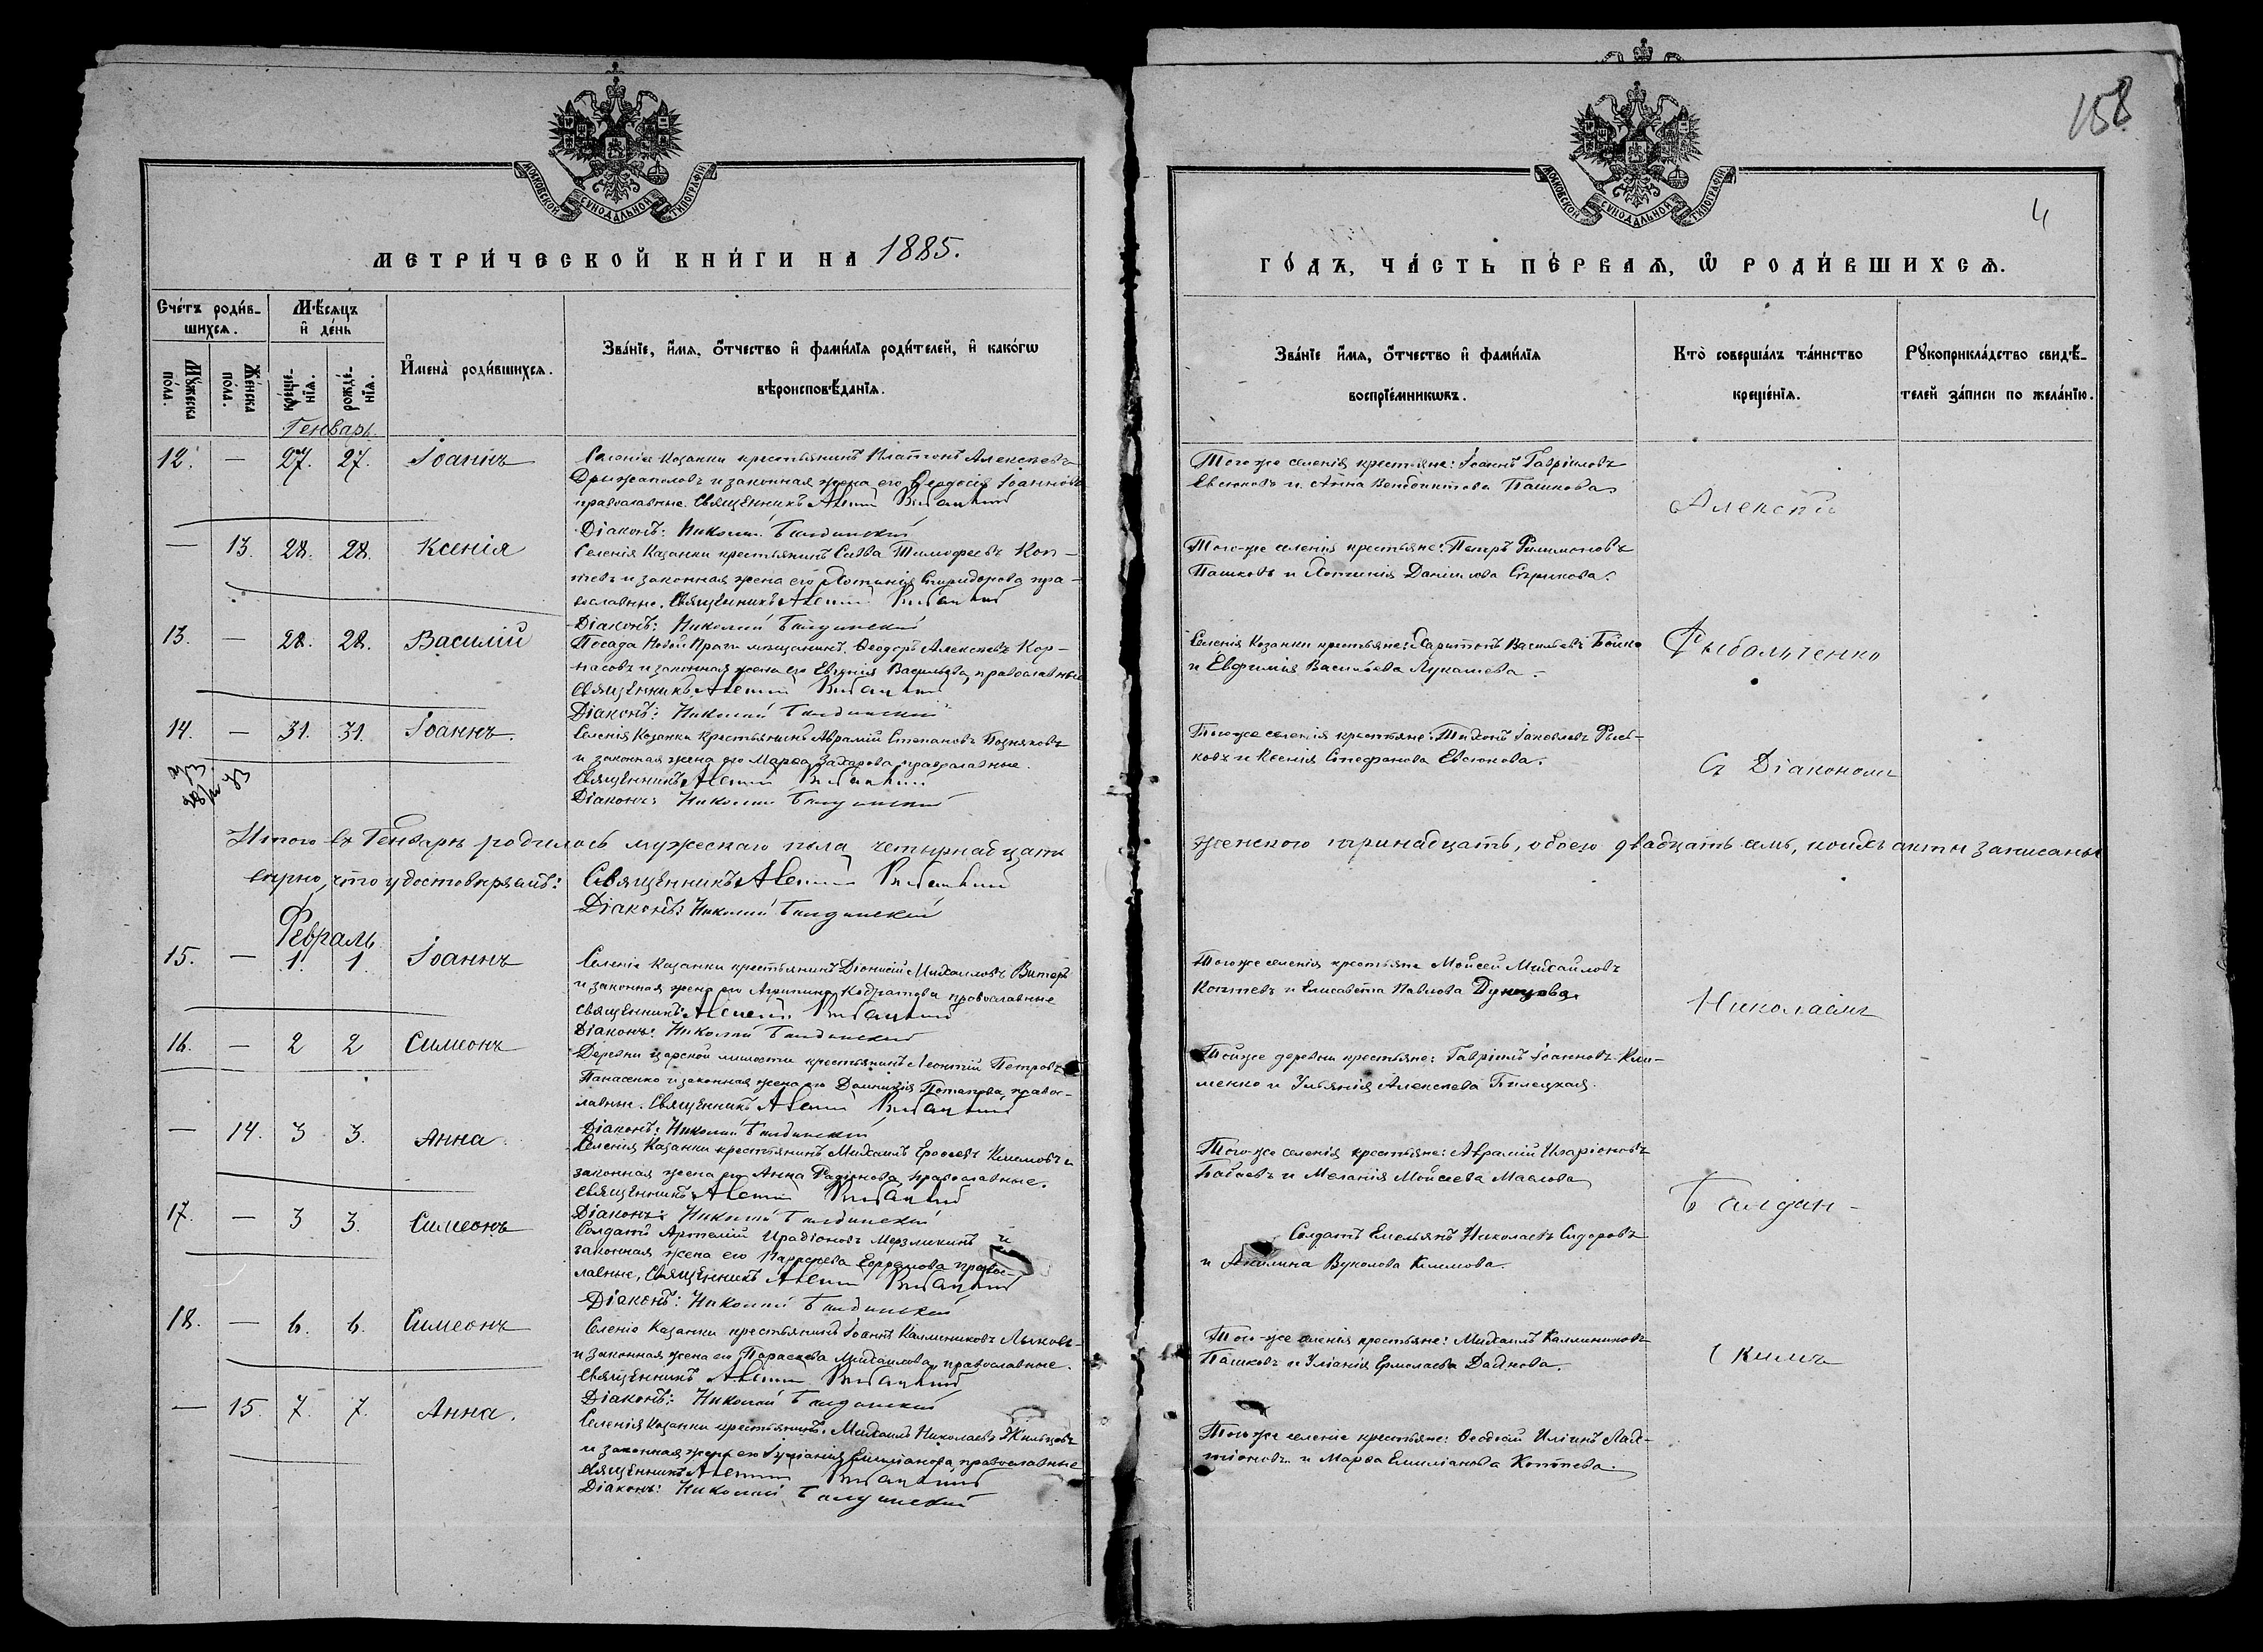 МОСКОВСКОЙ СѴНОДАЛЬНОЙ ТИПОГРАФІИ
МЕТРИ́ЧЕСКОЙ КНИ́ГИ НА 1885.
Сче́тъ роди́в-
шихсѧ.
Мѣ́сѧцъ
и҆ де́нь
Мꙋ́жеска
по́ла.
Же́нска
по́ла.
кре́ще-
нїѧ.
рожде́-
нїѧ.
И҆мена̀ роди́вшихсѧ.
Зва́нїе, и҆́мѧ, ѻ҆́тчество и҆ фами́лїѧ роди́телей, и҆ како́гѡ
вѣроисповѣ́данїѧ.
Генварь
12. — 27. 27. Іоаннъ
Селенія Казанки крестьянинъ Платонъ Алексѣевъ
Дрыжаполовъ и законная жена его Ѳеодосія Іоаннова
православные. Священникъ
Діаконъ: Николай
— 13. 28. 28. Ксенія
Селенія Казанки крестьянинъ Савва Тимофеевъ Коп-
тевъ и законная жена его Фотинія Спиридонова пра-
вославные. Священникъ
Діаконъ: Николай
13. — 28. 28. Василій
Посада Новой Праги мѣщанинъ Ѳеодоръ Алексѣевъ Кор-
насовъ и законная жена его Евгенія Васильева, православные
Священникъ
Діаконъ: Николай
14. — 31. 31. Іоаннъ.
Селенія Казанки крестьянинъ Аврамій Степановъ Позняковъ
и законная жена его Марѳа Захарова православные.
Священникъ
Діаконъ: Николай
Итого въ Генварѣ родилось мужескаго пола четырнадцать
вѣрно, что удостовѣряемъ: Священникъ
Діаконъ: Николай
Февраль
15. — 1. 1. Іоаннъ
Селенія Казанки крестьянинъ Діонисій Михаиловъ Витеръ
и законная жена его Агрипина Кодратова православные
Священникъ
Діаконъ: Николай
16. — 2 2 Симеонъ
Деревни Царской милости крестьянинъ Леонтій Петровъ
Панасенко и законная жена его Домникія Потапова, правос-
лавные. Священникъ
Діаконъ: Николай
— 14. 3 3. Анна
Селенія Казанки крестьянинъ Михаилъ Ероѳеевъ Климовъ и
законная жена его Анна Радіонова, православные.
Священникъ
Діаконъ: Николай
17. — 3 3. Симеонъ
Солдатъ Артемій Ирадіоновъ Мерзликинъ и
законная жена его
лавные, Священникъ
Діаконъ: Николай
18. — 6. 6. Симеонъ
Селенія Казанки крестьянинъ Іоаннъ Калинниковъ Лыковъ
и законная жена его Параскева Михаилова, православные.
Священникъ
Діаконъ: Николай
— 15. 7. 7. Анна.
Селенія Казанки крестьянинъ Михаилъ Николаевъ
и законная жена его Емиліанова, православные
Священникъ
Діаконъ: Николай
158
4
МОСКОВСКОЙ СѴНОДАЛЬНОЙ ТИПОГРАФІИ
ГО́ДЪ, ЧА́СТЬ ПЕ́РВАѦ, Ѡ҆ РОДИ́ВШИХСѦ.
Зва́нїе и҆́мѧ, ѻ҆́тчество и҆ фами́лїѧ
воспрїе́мникѡвъ.
Кто̀ соверша́лъ та́инство
креще́нїѧ.
Рꙋкоприкла́дство свидѣ́-
телей за́писи по жела́нїю.
Того же селенія крестьяне: Іоаннъ Гавріиловъ
Евсюковъ и Анна Венедиктова Пашкова.
Алексій
Того-же селенія крестьяне: Петръ Филимоновъ
Пашковъ и Фотинія Даніилова Стрикова.
Селенія Казанки крестьяне: Харитонъ Васильевъ Бойко
и Евфимія Васильева Лукашева.
Рыбальченко
Того же селенія крестьяне: Тихонъ Іаковлевъ Рыб-
ковъ и Ксенія Стефанова Евсюкова.
Съ Діакономъ
женскаго тринадцать, обоего двадцать семь, коихъ акты записаны
Того же селенія крестьяне Мойсей Михайловъ
Коптевъ и Елисавета Павлова Дунцова.
Николаемъ
Той же деревни крестьяне: Гавріилъ Іоанновъ Кли-
менко и Ульянія Алексѣева Билецкая.
Того-же селенія крестьяне: Аврамій Иларіоновъ
Бабаевъ и Меланія Мойсеева Маслова
Балдан-
Солдатъ Емельянъ Николаевъ Сидоровъ
и Акилина Вуколова Климова.
Того-же селенія крестьяне: Михаилъ Калинниковъ
Пашковъ и Уліанія Ермолаева Даянова.
скимъ
Того же селенія крестьяне: Ѳеодосій Иліинъ Лак-
тіоновъ и Марѳа Емиліанова Коптева.